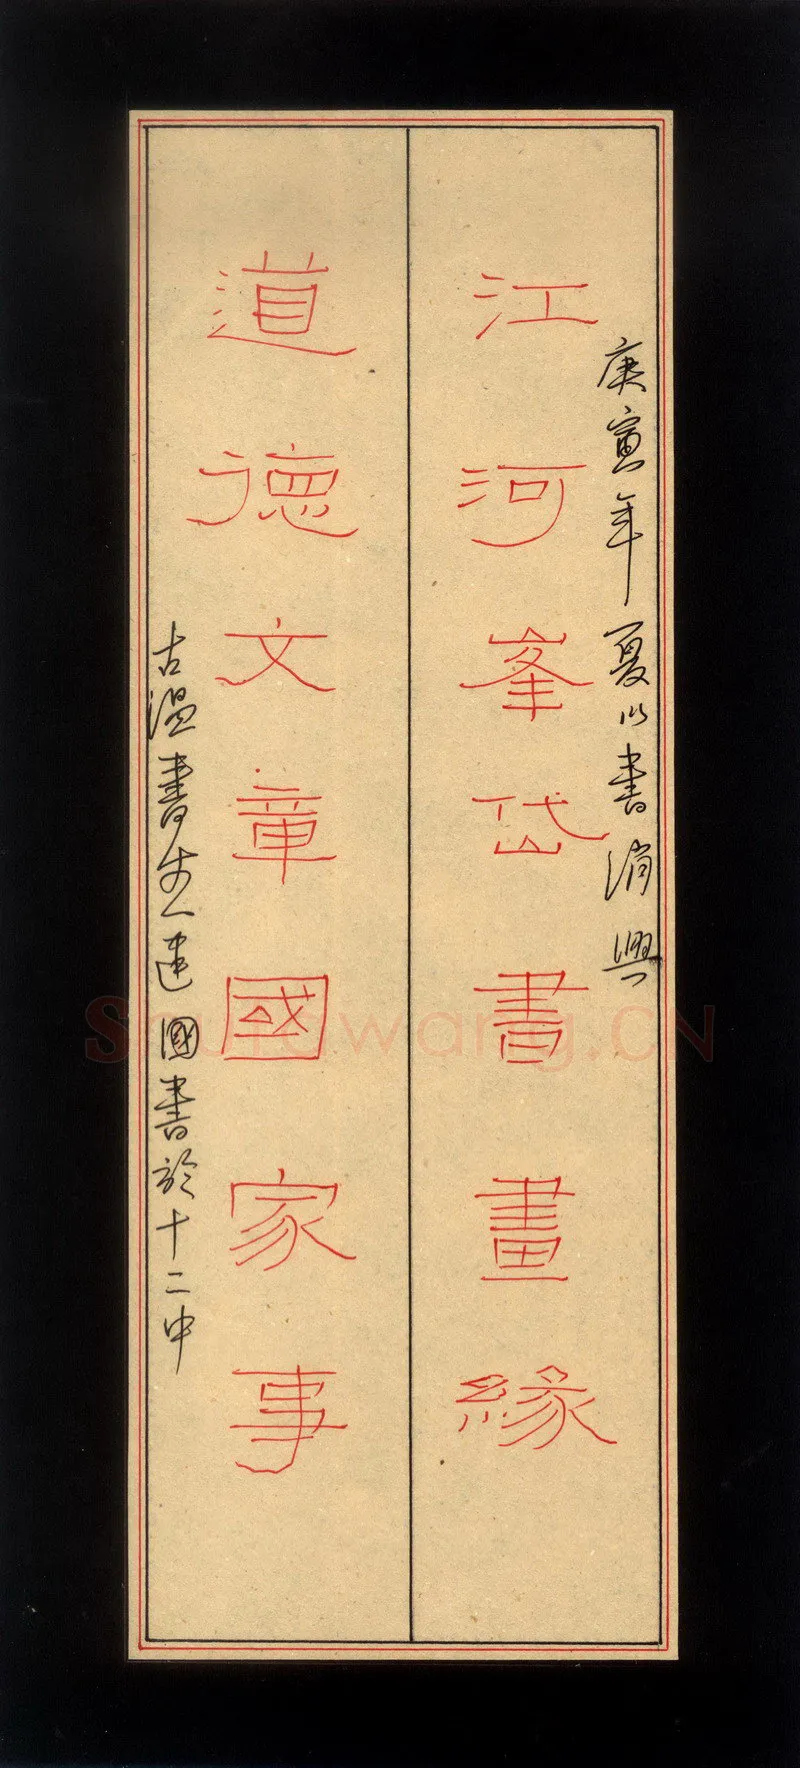 庚寅年夏以書消興
江河峯岱書畫緣
道德文章國家事
古温書生建國書於十二中
Shufawang.CN